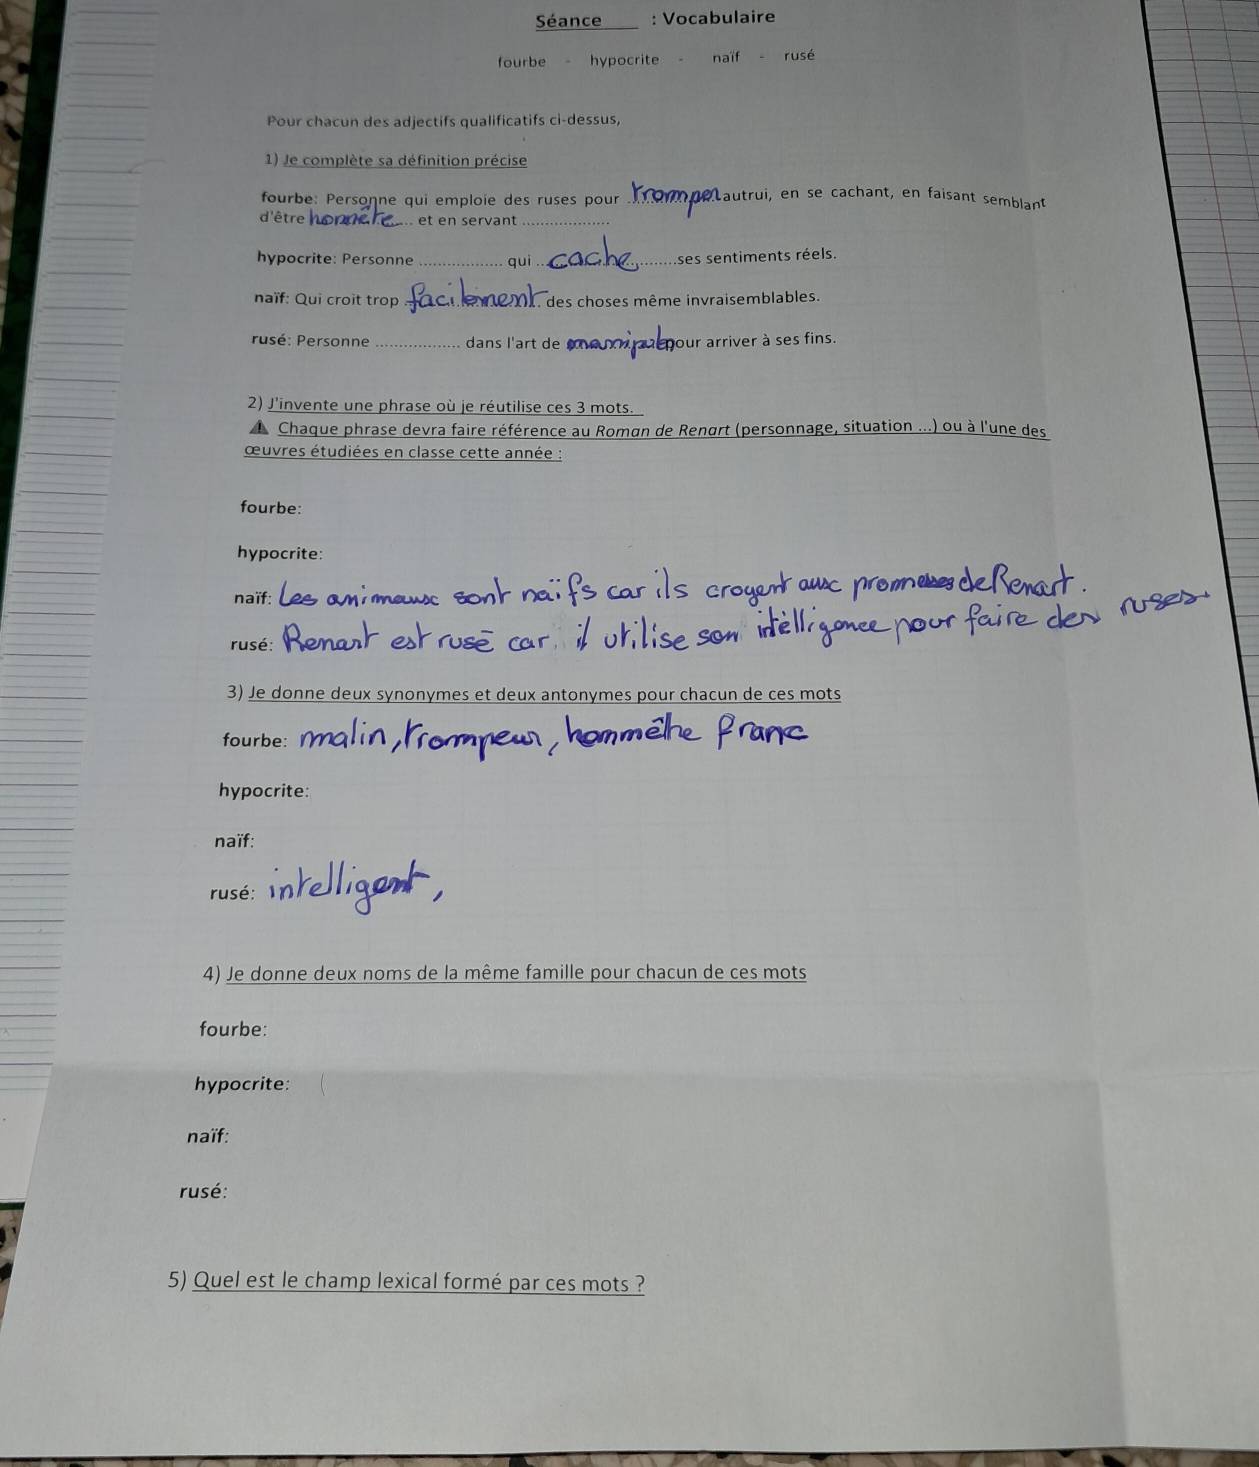 Séance ____ : Vocabulaire
fourbe - hypocrite - naïf - rusé
Pour chacun des adjectifs qualificatifs ci-dessus,
1) Je complète sa définition précise
fourbe: Personne qui emploie des ruses pour tromper autrui, en se cachant, en faisant semblant
d'être honnête et en servant ....................
hypocrite: Personne .................. qui cache ses sentiments réels.
naïf: Qui croit trop facilement des choses même invraisemblables.
rusé: Personne .................. dans l'art de manipuler pour arriver à ses fins.
2) J'invente une phrase où je réutilise ces 3 mots.
⚠ Chaque phrase devra faire référence au Roman de Renart (personnage, situation ...) ou à l'une des
œuvres étudiées en classe cette année :
fourbe:
hypocrite:
naïf: Les animaux sont naïfs car ils croyent aux promesses de Renart.
rusé: Renart est rusé car il utilise son intélligence pour faire des ruses
3) Je donne deux synonymes et deux antonymes pour chacun de ces mots
fourbe: malin, trompeur, honnête franc
hypocrite:
naïf:
rusé: intelligent,
4) Je donne deux noms de la même famille pour chacun de ces mots
fourbe:
hypocrite:
naïf:
rusé:
5) Quel est le champ lexical formé par ces mots ?